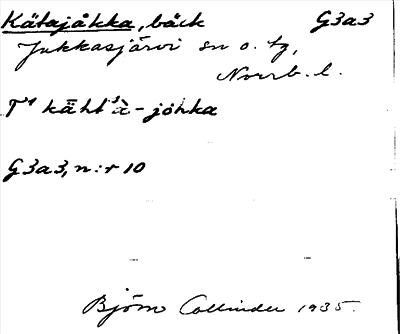 Kätajåkka, bäck G3a3
Jukkasjärvi sn o. tg,
Norrb. l.
T¹ kāht'à-johka
G3a3, n:r 10
Björn Collinder 1935.